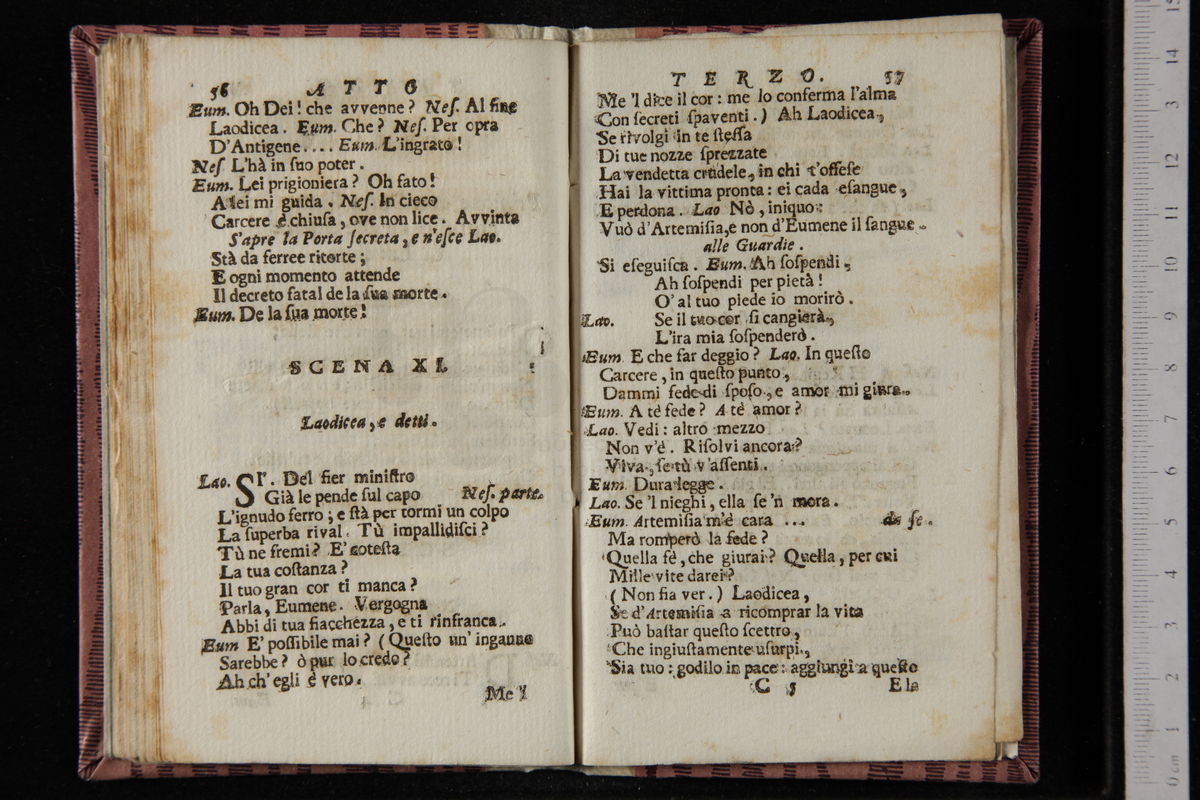 56 ATTO
Eum. Oh Dei! che avvenne? Neſ. Al fine
Laodicea. Eum. Che? Neſ. Per opra
D'Antigene.... Eum. L'ingrato!
Neſ L'hà in ſuo poter.
Eum. Lei prigioniera? Oh fato!
A lei mi guida. Neſ. In cieco
Carcere è chiuſa, ove non lice. Avvinta
S'apre la Porta ſecreta, e n'eſce Lao.
Stà da ferree ritorte;
E ogni momento attende
Il decreto fatal de la ſua morte.
Eum. De la ſua morte!
SCENA XI.
Laodicea, e detti.
Lao. SI'. Del fier miniſtro
Già le pende ſul capo Neſ. parte.
L'ignudo ferro; e ſtà per tormi un colpo
La ſuperba rival. Tù impallidiſci?
Tù ne fremi? E' coteſta
La tua coſtanza?
Il tuo gran cor ti manca?
Parla, Eumene. Vergogna
Abbi di tua fiacchezza, e ti rinfranca.
Eum E' poſſibile mai? (Queſto un' inganno
Sarebbe? ò pur lo credo?
Ah ch'egli è vero.
Me 'l
TERZO. 57
Me 'l dice il cor: me lo conferma l'alma
Con ſecreti ſpaventi.) Ah Laodicea,
Se rivolgi in te ſteſſa
Di tue nozze ſprezzate
La vendetta crudele, in chi t'offeſe
Hai la vittima pronta: ei cada eſangue,
E perdona. Lao Nò, iniquo:
Vuò d'Artemiſia, e non d'Eumene il ſangue.
alle Guardie.
Si eſeguiſca. Eum. Ah ſoſpendi,
Ah ſoſpendi per pietà!
O' al tuo piede io morirò.
Lao. Se il tuo cor ſi cangierà,
L'ira mia ſoſpenderò.
Eum. E che far deggio? Lao. In queſto
Carcere, in queſto punto,
Dammi fede di ſpoſo, e amor mi giura.
Eum. A tè fede? A tè amor?
Lao. Vedi: altro mezzo
Non v'é. Riſolvi ancora?
Viva, ſe tù v'aſſenti.
Eum. Dura legge.
Lao. Se 'l nieghi, ella ſe 'n mora.
Eum. Artemiſia m'é cara ... da ſe.
Ma romperò la fede?
Quella fè, che giurai? Quella, per cui
Mille vite darei?
(Non fia ver.) Laodicea,
Se d'Artemiſia a ricomprar la vita
Può baſtar queſto ſcettro,
Che ingiuſtamente uſurpi,
Sia tuo: godilo in pace: aggiungi a queſto
C 5 E la
15
14
13
12
11
10
9
8
7
6
5
4
3
2
1
0 cm